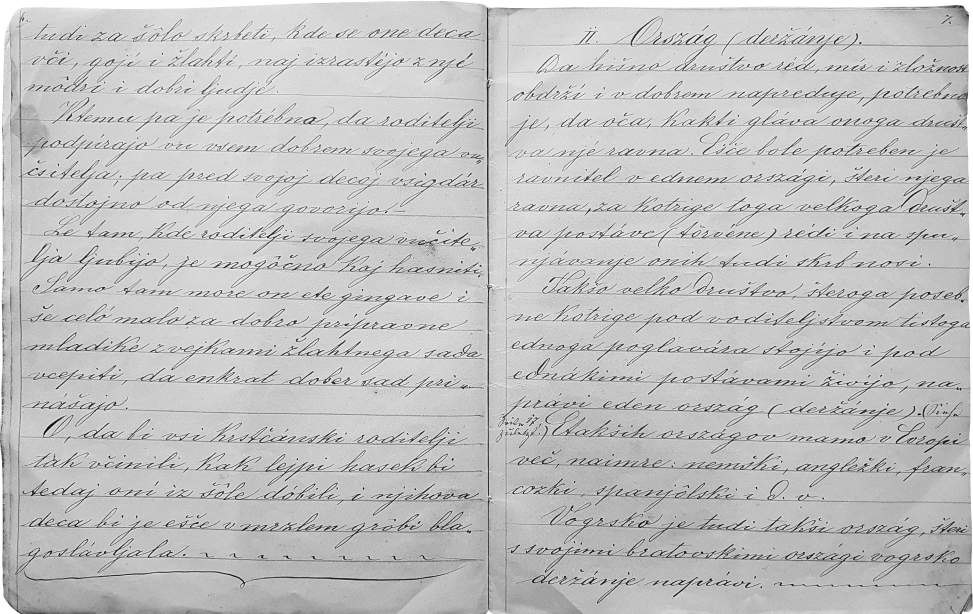 6.
tudi za šôlo skrbeti, kde se one deca
vči, goji i žlahti, naj izrastíjo z njé
môdri i dobri ljudjé.
K temu pa je potrêbna, da roditelji
podpirajo vu vsem dobrem svojega vu„
čitelja; pa pred svojoj decôj vsigdár
dostojno od njega govorijo.–
Le tam, kde roditelji svojega vučite„
lja ljubijo, je mogôčno kaj hasniti,
Samo tam more on ete gingave i
še celo malo za dobro priprávne
mladike z vejkami žlahtnega sada
vcepiti, da enkrat dober sad pri„
nášajo.
O, da bi vsi krsčánski roditelji
tak včinili, kak lejpi hasek bi
tedaj oni iz šôle dôbili, i njihova
deca bi je ešče v mrzlem grôbi bla„
goslávljala.
7.
II. Ország (deržánje).
Da hišno društvo réd, mir i zložnost
obdrží i v dobrem napreduje, potrebno
je, da oča, kakti gláva onoga društ„
va njé ravna. Ešče bole potreben je
ravnitel v ednem országi, šteri njega
ravna, za kotrige toga velkoga društ„
va postáve (törvéne) rédi i na spu„
njávanje onih tudi skrb nosi.
Takšo velko društvo, šteroga poseb„
ne kotrige pod voditeljstvom listoga
ednoga poglavára stojíjo i pod
ednákimi postávami živijo, na„
právi eden ország (deržánje).
Etakših országov mamo v Europi
več, naimre: nemški, angležki, fran„
cozki, španjôlski i d. v.
Vogrsko je tudi takši ország, šteri
s svojimi bratovskimi országi vogrsko
deržánje naprávi.